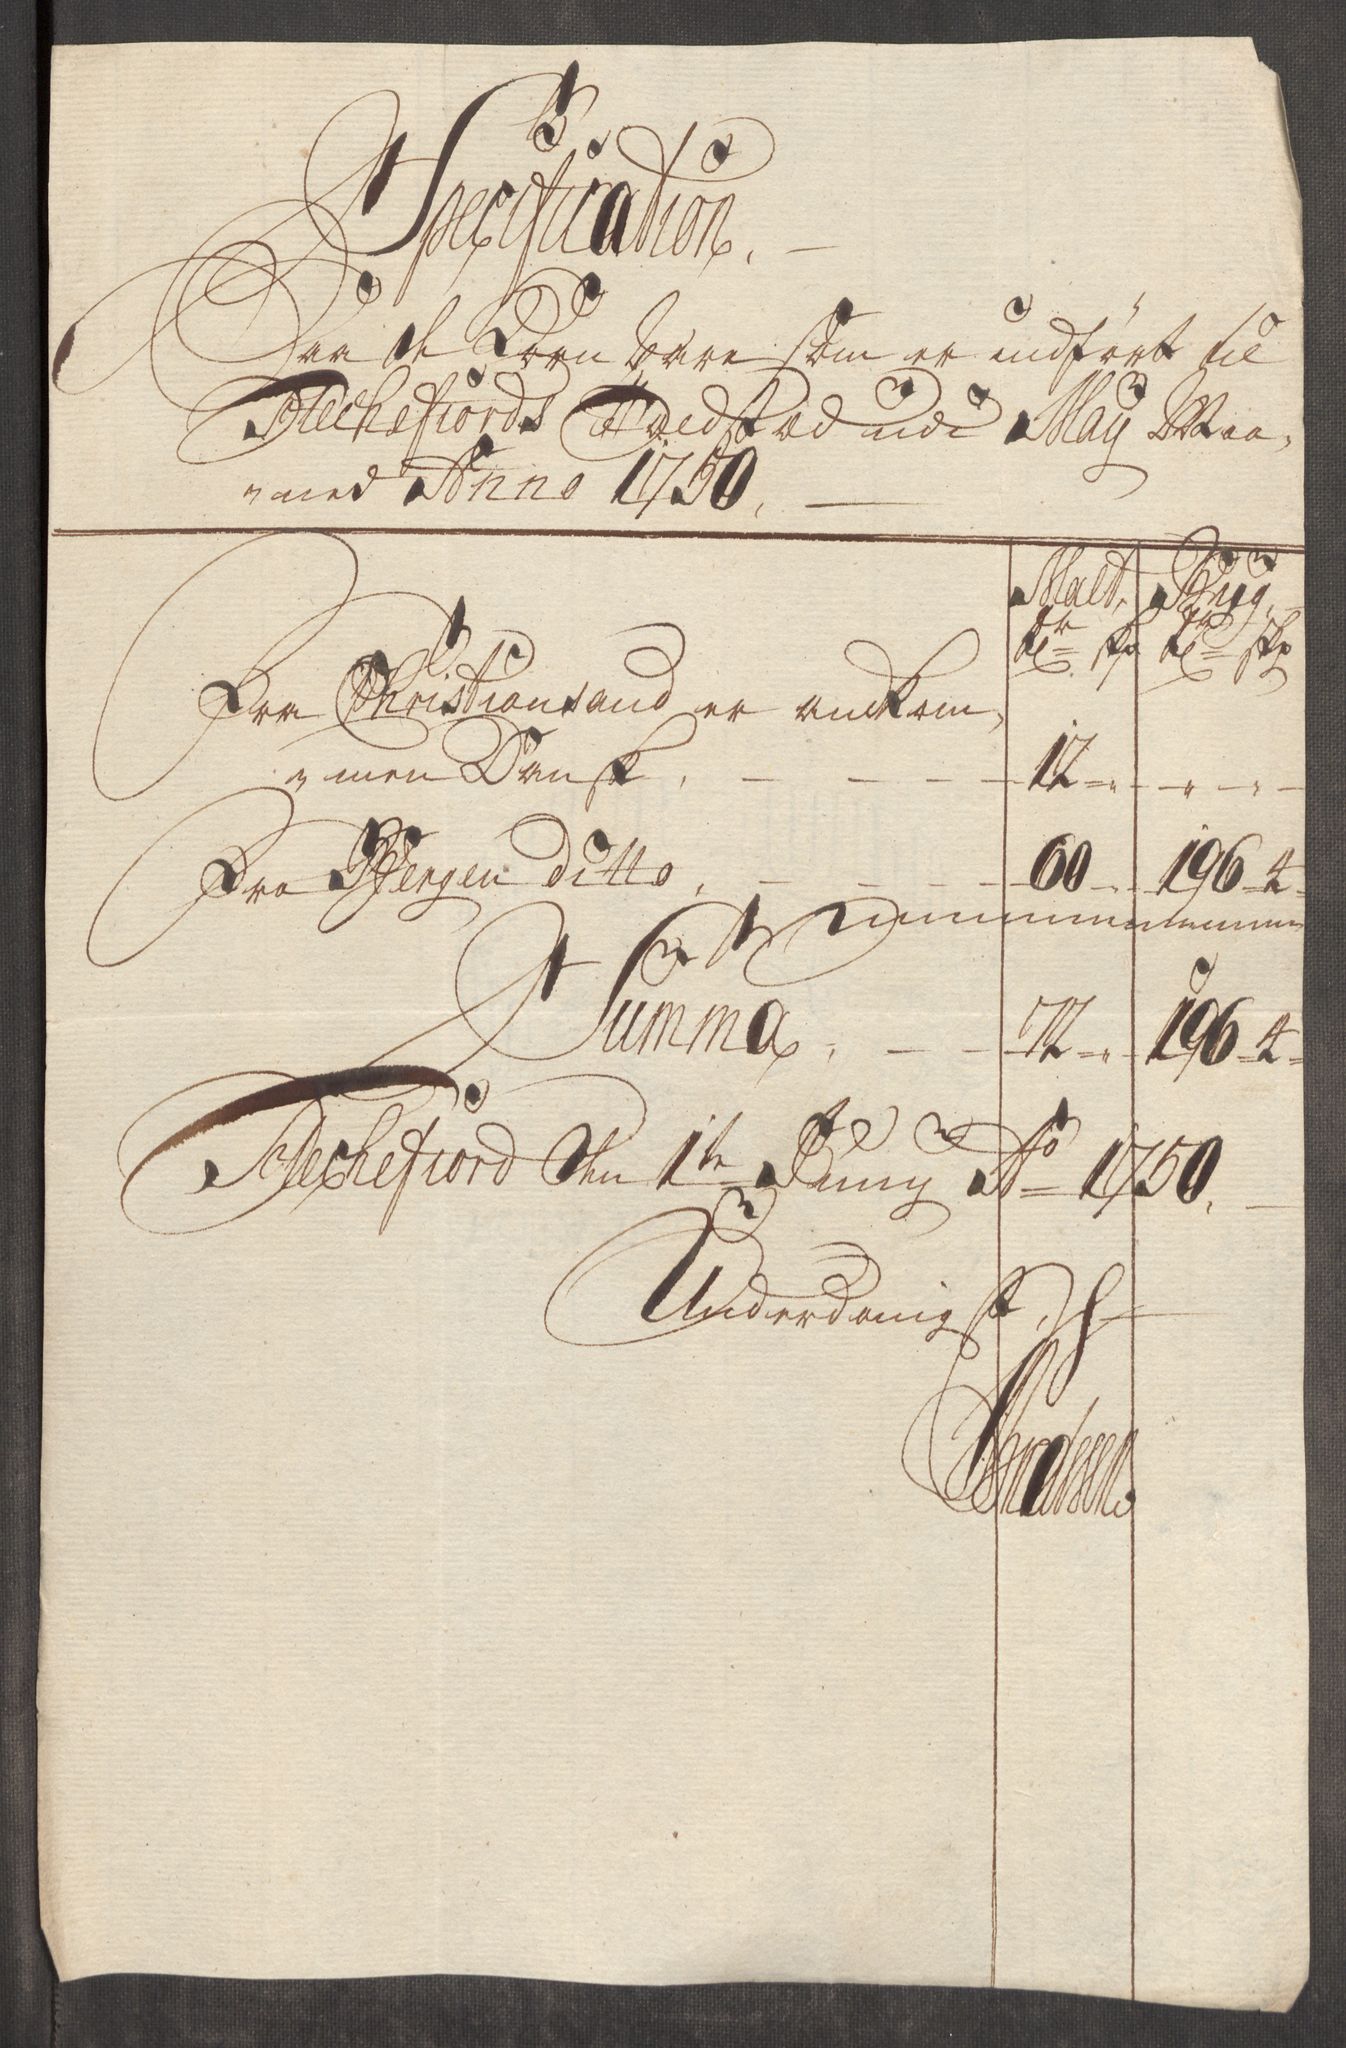 Specification.
Paa de Korn Vare som er indført til
Flechefiords Toedstæd udi May Maa-
ned Anno 1750.
Malt, Rug,
tr skp tr skp
Fra Christiansand er ankom-
men Dansk. 12 " " "
Fra Bergen ditto. 60 " 196 4
Summa. 72 " 196 4
Flechefiord den 1te Juny Ao 1750.
Underdanigst,